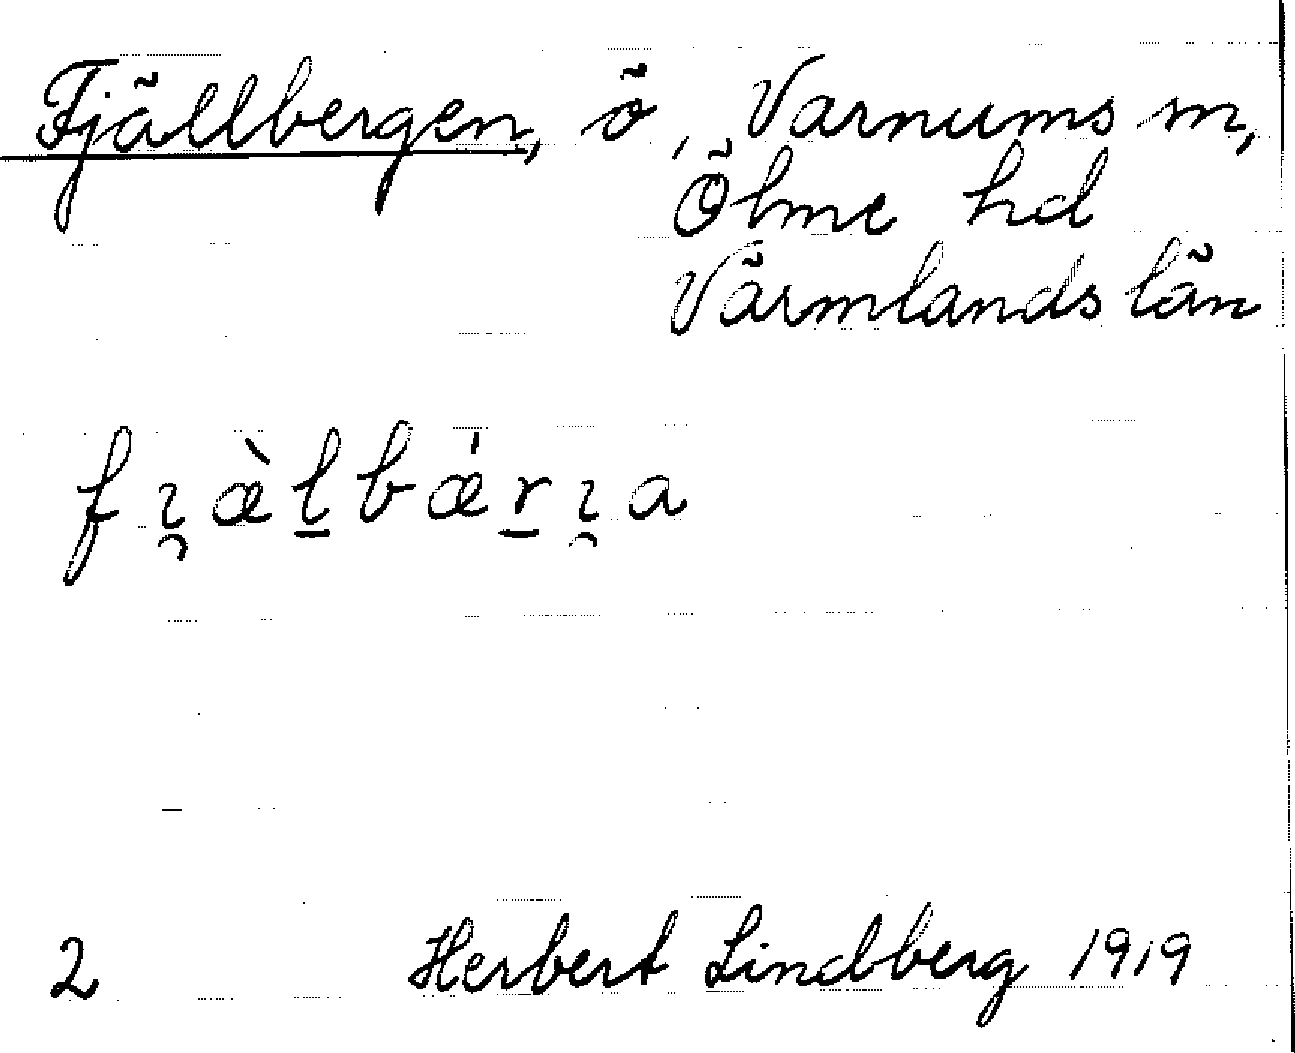 Fjällbergen, ö, Varnums sn,
Ölme hd
Värmlands län
fı̯æ̀l̠bæ̍r̠ı̯a
2 Herbert Lindberg 1919